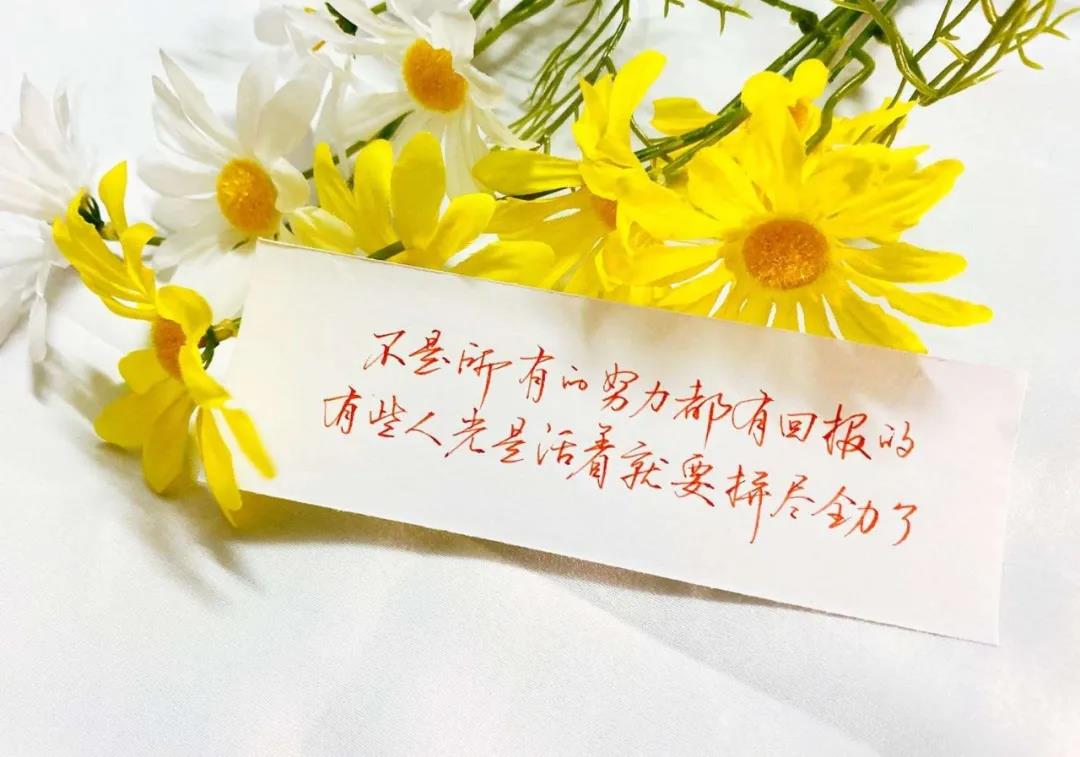 不是所有的努力都有回报的
有些人光是活着就要拼尽全力了